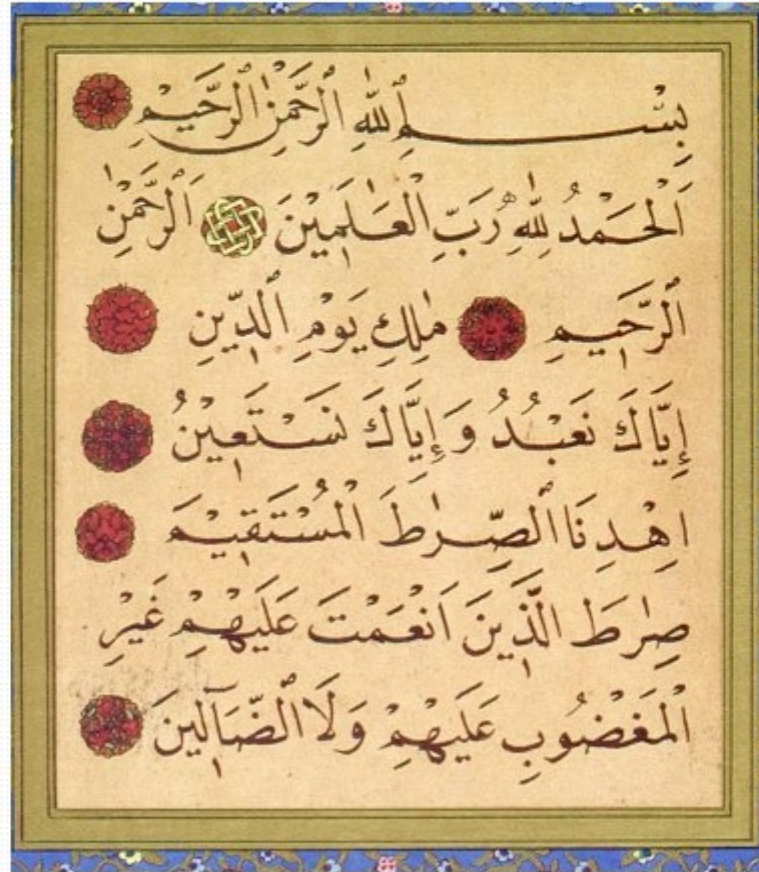 بِسْمِ ٱللّٰهِ ٱلرَّحْمٰنِ ٱلرَّحِيْمِ
اَلْحَمْدُ لِلّٰهِ رَبِّ الْعَالَمِيْنَ اَلرَّحْمٰنِ
ٱلرَّحِيْمِ مٰلِكِ يَوْمِ ٱلدِّيْنِ
إِيَّاكَ نَعْبُدُ وَإِيَّاكَ نَسْتَعِيْنُ
اِهْدِنَا ٱلصِّرٰطَ الْمُسْتَقِيْمَ
صِرٰطَ الَّذِيْنَ اَنْعَمْتَ عَلَيْهِمْ غَيْرِ
الْمَغْضُوْبِ عَلَيْهِمْ وَلَا ٱلضَّآلِّيْنَ